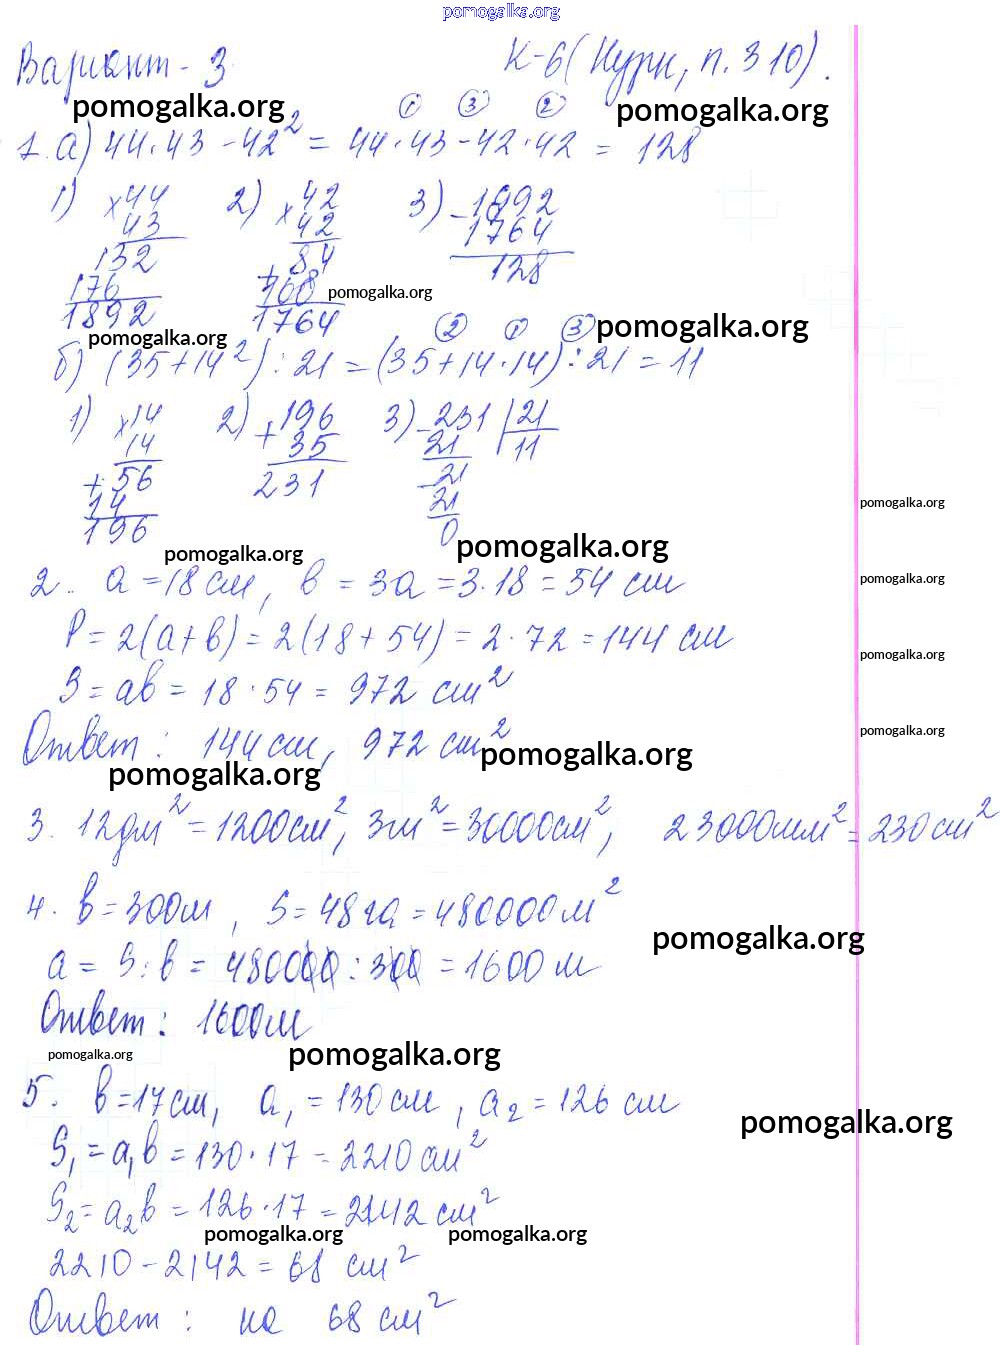 pomogalka.org
Вариант - 3 К-6 (Нурк, п. 3 10).
pomogalka.org ① ③ ② pomogalka.org
1. а) 44·43 - 42² = 44·43 - 42·42 = 128
1) × 44 2) × 42 3) - 1892
43 42 1764
132 + 84 128
176 168 pomogalka.org
1892 1764
pomogalka.org ② ① ③ pomogalka.org
б) (35+14²) : 21 = (35+14·14) : 21 = 11
1) × 14 2) + 196 3) - 231 | 21
14 35 21 11
+ 56 231 - 21
14 21
196 0
pomogalka.org
pomogalka.org pomogalka.org
2. a = 18 см, в = 3a = 3·18 = 54 см
pomogalka.org
P = 2(a+в) = 2(18+54) = 2·72 = 144 см
pomogalka.org
S = aв = 18·54 = 972 см²
pomogalka.org
Ответ: 144 см, 972 см²
pomogalka.org pomogalka.org
3. 12дм² = 1200см², 3м² = 30000см², 23000мм² = 230см²
4. в = 300м, S = 48 га = 480000 м²
pomogalka.org
a = S : в = 480000 : 300 = 1600 м
Ответ: 1600м
pomogalka.org pomogalka.org
5. в = 17 см, a₁ = 130 см, a₂ = 126 см
pomogalka.org
S₁ = a₁в = 130·17 = 2210 см²
S₂ = a₂в = 126·17 = 2142 см²
pomogalka.org pomogalka.org
2210 - 2142 = 68 см²
Ответ: на 68 см²